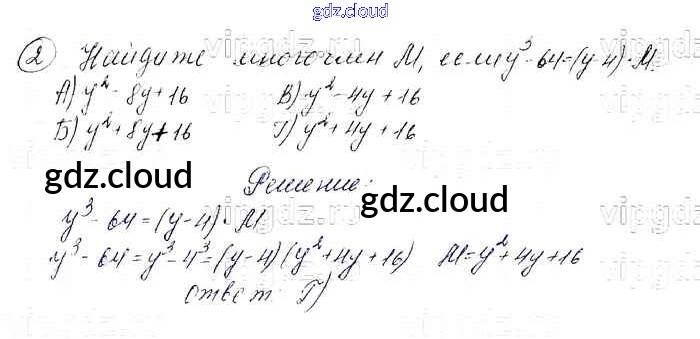 gdz.cloud
② Найдите многочлен М, если y³ - 64 = (y - 4) · М.
А) y² - 8y + 16 В) y² - 4y + 16
Б) y² + 8y + 16 Г) y² + 4y + 16
Решение:
gdz.cloud
gdz.cloud
y³ - 64 = (y - 4) · М
y³ - 64 = y³ - 4³ = (y - 4)(y² + 4y + 16) М = y² + 4y + 16
ответ: Г)